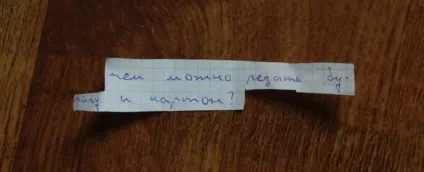 чем можно резать бу-
магу и картон?